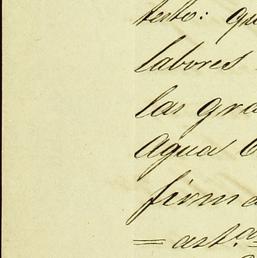 testo: que
labores
las gra
Agua C
firma
= art.a